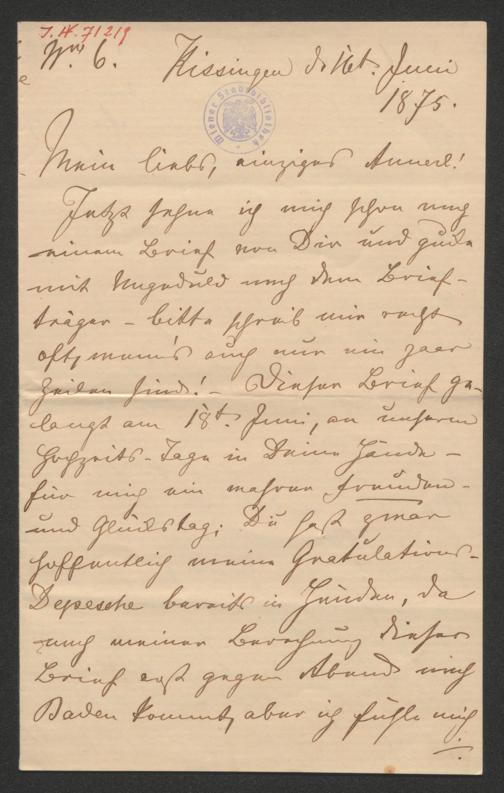 J. N. 71219
No. 6.
Kissingen d. 16t. Juni
1875.
Wiener Stadtbibliothek
Mein liebs, einziges Annerl!
Jetzt sehne ich mich schon nach
einem Brief von Dir und gucke
mit Ungeduld nach dem Brief-
träger – bitte schreib mir recht
oft, wenn's auch nur ein paar
Zeilen sind! – Dieser Brief ge-
langt am 18t. Juni, an unserem
Hochzeits-Tage in Deine Hände –
für mich ein wahrer Freuden-
und Glückstag; Du hast zwar
hoffentlich meine Gratulations-
Depesche bereits in Händen, da
nach meiner Berechnung dieser
Brief erst gegen Abend nach
Baden kommt, aber ich fühle mich